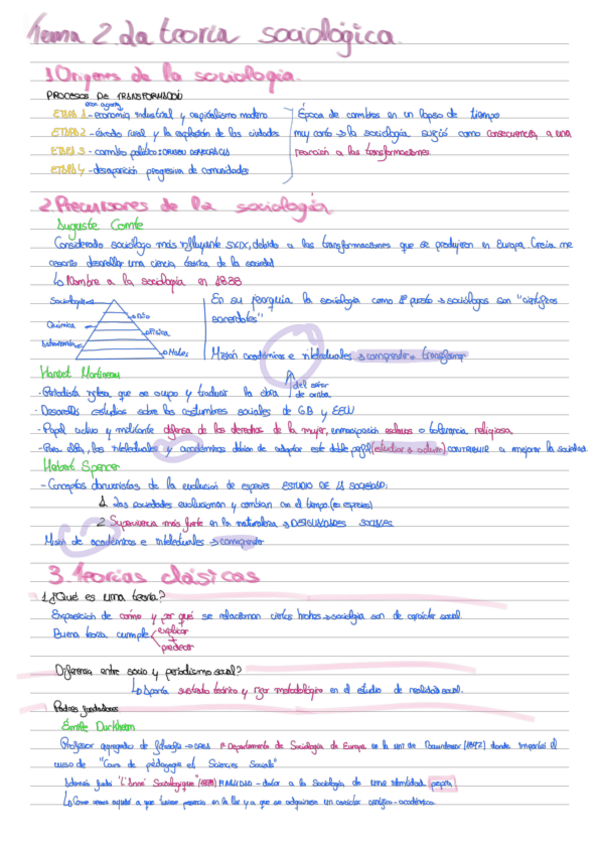 Tema 2. La teoría sociológica.
1. Orígenes de la sociología.
PROCESOS DE TRANSFORMACIÓN
ETAPA 1 - economía industrial y capitalismo moderno
ETAPA 2 - éxodo rural y la explosión de las ciudades
ETAPA 3 - cambio político: ORIGEN DEMOCRACIAS
ETAPA 4 - desaparición progresiva de comunidades
Época de cambios en un lapso de tiempo
muy corto → la sociología surgió como consecuencia, a una
reacción a las transformaciones.
2. Precursores de la sociología
Auguste Comte
Considerado sociólogo más influyente SXIX, debido a las transformaciones que se produjeron en Europa. Creía
desarrollar una ciencia de la sociedad
↳ Nombre a la sociología en 1838
Sociología
Química
Bio
Física
Mates
En su jerarquía la sociología como 1º puesto → sociólogos son "científicos
sacerdotes"
Misión académicos e intelectuales → comprender transformar
Harriet Martineau
del autor
de arriba
- Periodista inglesa que se ocupó y tradujo la obra
- Desarrolló estudios sobre las costumbres sociales de GB y EEUU
- Papel activo y militante defensa de los derechos de la mujer, emancipación esclavos o tolerancia religiosa
- Para ella, los intelectuales y académicos debían de adoptar este doble perfil (estudiar & actuar) CONTRIBUIR a mejorar la sociedad
Herbert Spencer
- Conceptos darwinistas de la evolución de especies ESTUDIO DE LA SOCIEDAD:
1. Las sociedades evolucionan y cambian con el tiempo (es especies)
2. Supervivencia más fuerte en la naturaleza → DESIGUALDADES SOCIALES
Misión de académicos e intelectuales → comprender
3. Teorías clásicas
1. ¿Qué es una teoría?
Exposición de cómo y por qué se relacionan ciertos hechos → sociología son de carácter social.
Buena teoría cumple
explicar
predecir
Diferencia entre socio y periodismo social?
↳ Aporta sustrato teórico y rigor metodológico en el estudio de realidad social.
Padres fundadores
Émile Durkheim
Profesor agregado de filosofía → 1º Departamento de Sociología de Europa en la univ de donde impartió el
curso de "Cours de pédagogie et Sciences Sociale"
Además funda "L'Année Sociologique" (1898) - dotar a la Sociología de una identidad propia